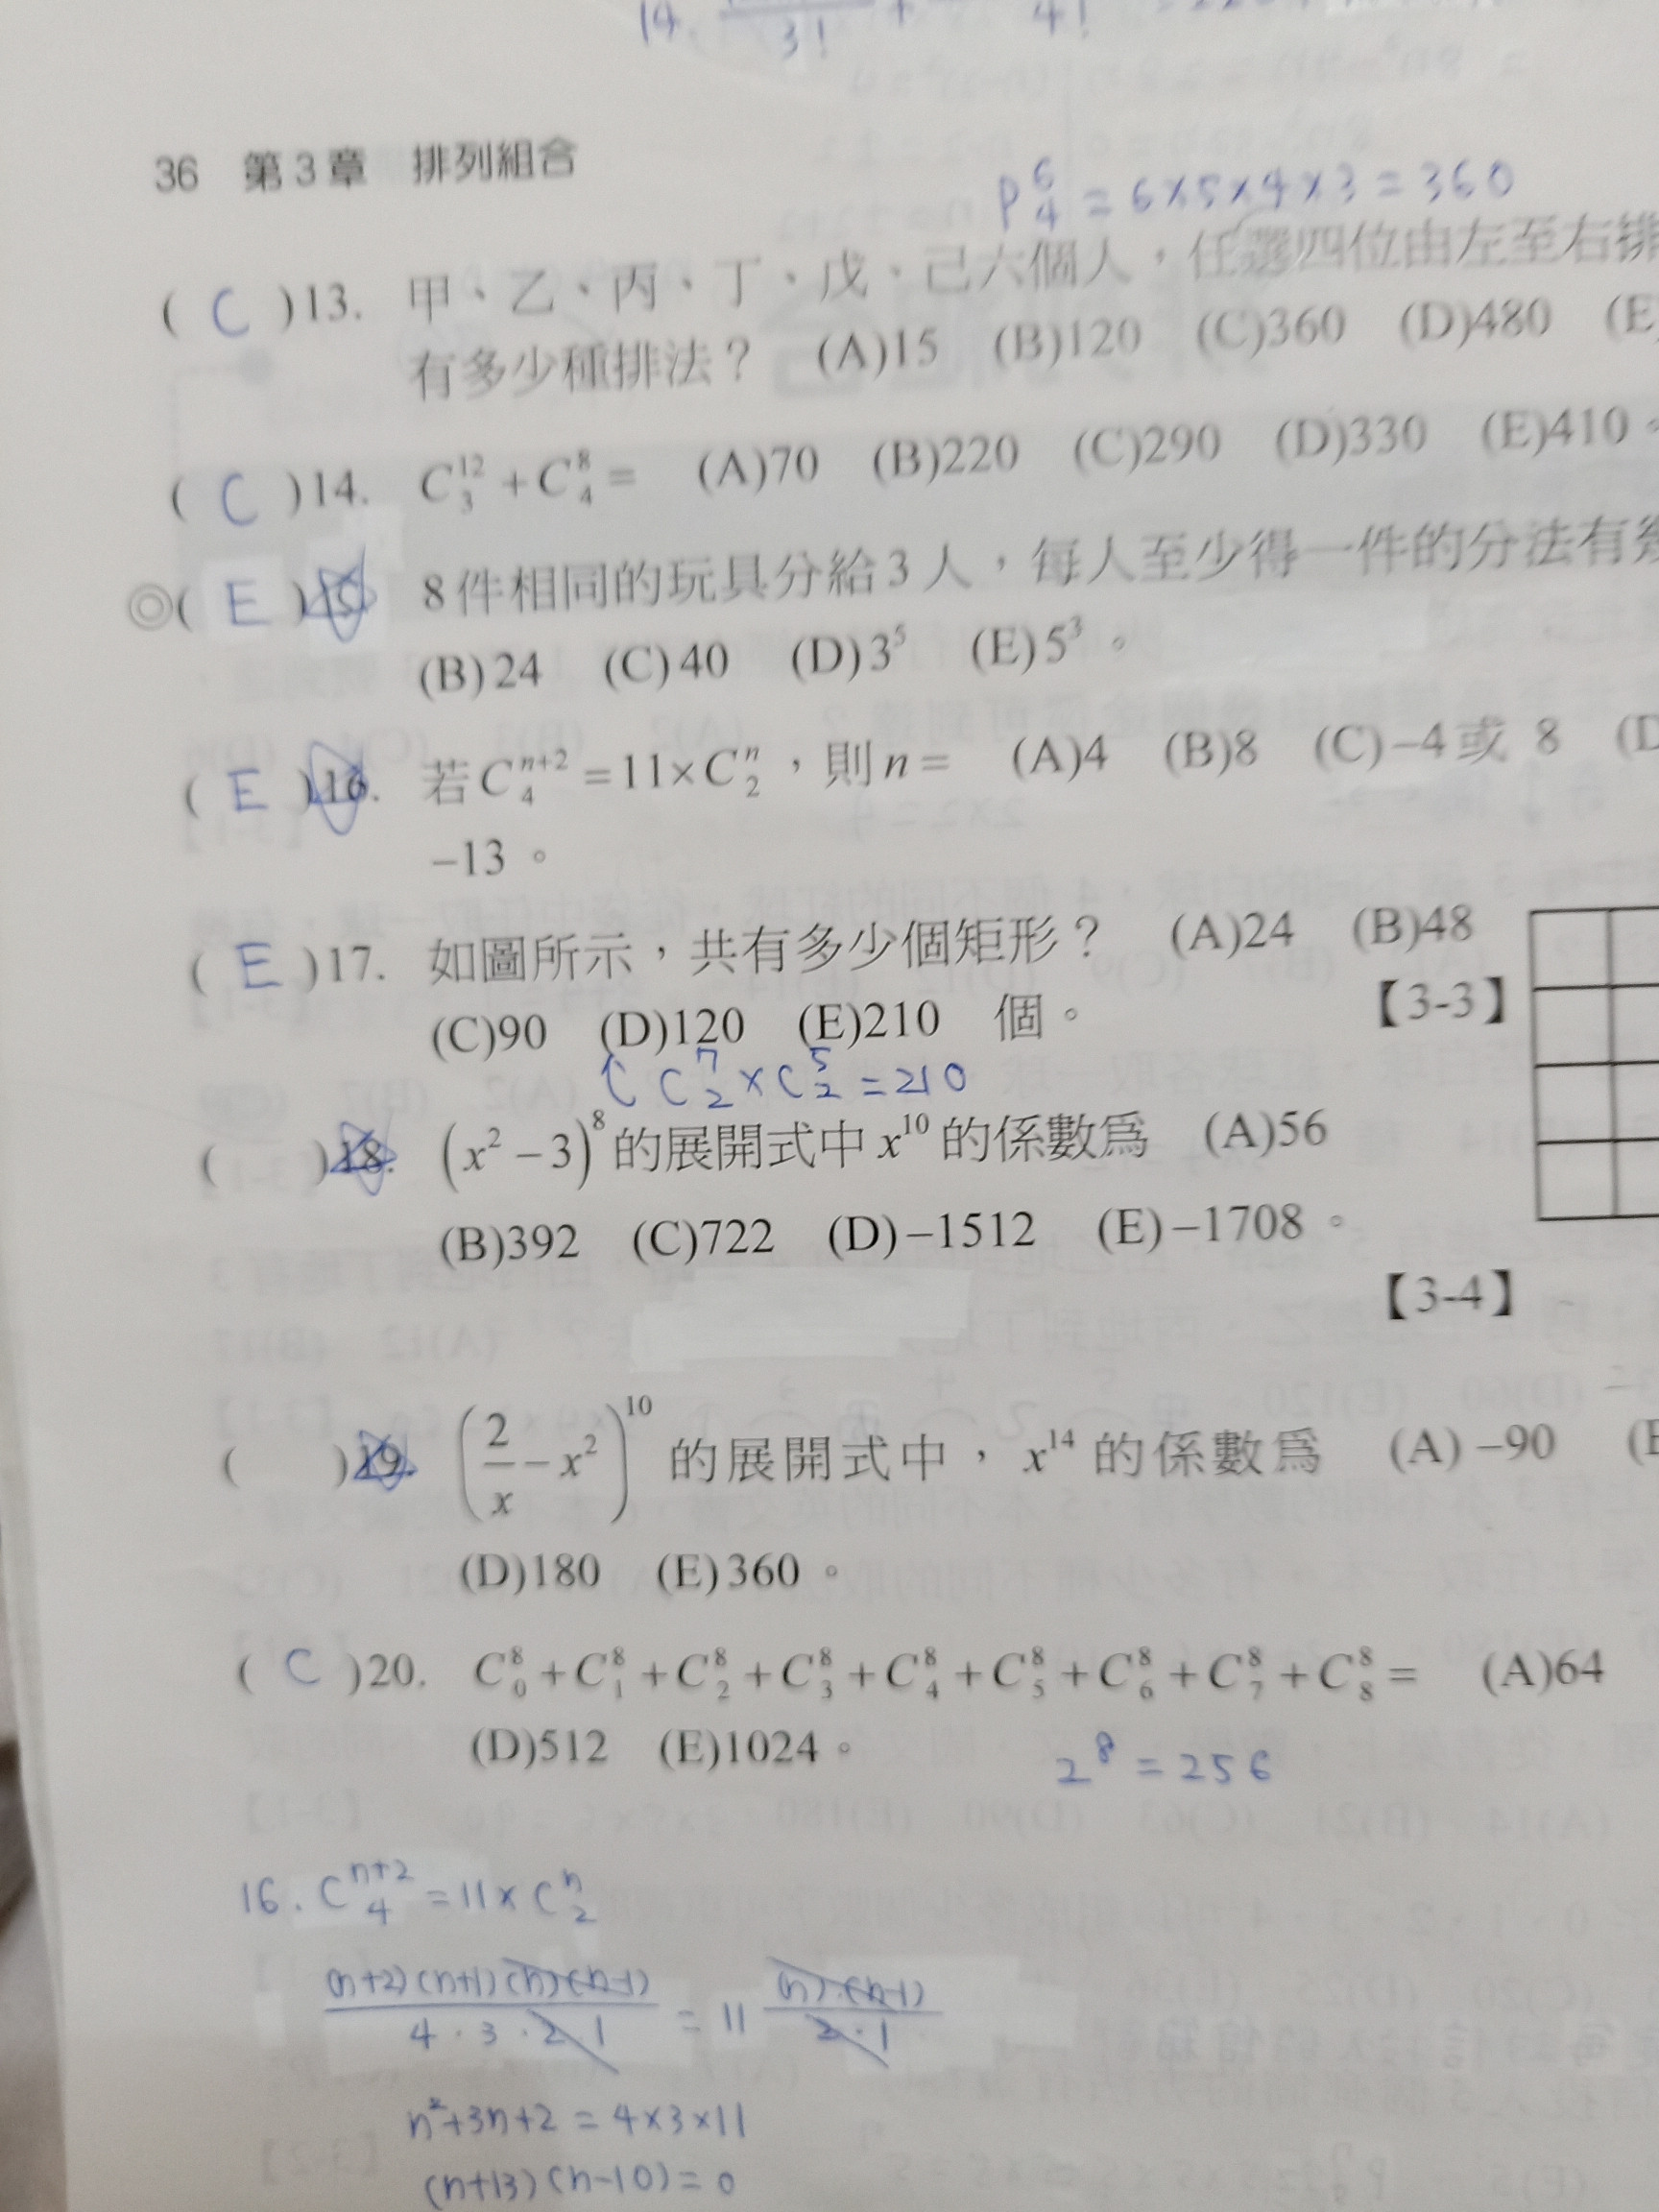 14. 3! + 4!
36 第3章 排列組合
P⁶₄ = 6×5×4×3 = 360
( C )13. 甲、乙、丙、丁、戊、己六個人,任選四位由左至右排
有多少種排法? (A)15 (B)120 (C)360 (D)480 (E)
( C )14. C¹²₃ + C⁸₄ = (A)70 (B)220 (C)290 (D)330 (E)410。
◎( E )15. 8件相同的玩具分給3人,每人至少得一件的分法有
(B)24 (C)40 (D)3⁵ (E)5³。
( E )16. 若Cⁿ⁺²₄ = 11×Cⁿ₂,則n = (A)4 (B)8 (C)−4或 8 (D
−13。
( E )17. 如圖所示,共有多少個矩形? (A)24 (B)48
(C)90 (D)120 (E)210 個。 【3-3】
C⁷₂ × C⁵₂ = 210
( )18. (x² − 3)⁸的展開式中x¹⁰的係數為 (A)56
(B)392 (C)722 (D)−1512 (E)−1708。
【3-4】
( )19. (2/x − x²)¹⁰ 的展開式中,x¹⁴的係數為 (A)−90
(D)180 (E)360。
( C )20. C⁸₀ + C⁸₁ + C⁸₂ + C⁸₃ + C⁸₄ + C⁸₅ + C⁸₆ + C⁸₇ + C⁸₈ = (A)64
(D)512 (E)1024。
2⁸ = 256
16. Cⁿ⁺²₄ = 11 × Cⁿ₂
(n+2)(n+1)(n)(n-1)/4·3·2·1 = 11 (n)·(n-1)/2·1
n²+3n+2 = 4×3×11
(n+13)(n-10) = 0